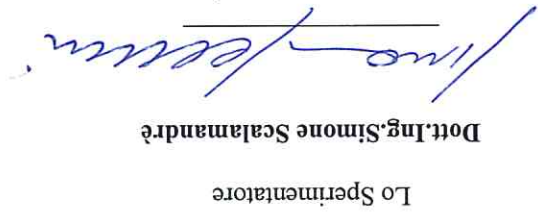 Lo Sperimentatore
Dott.Ing.Simone Scalamandrè